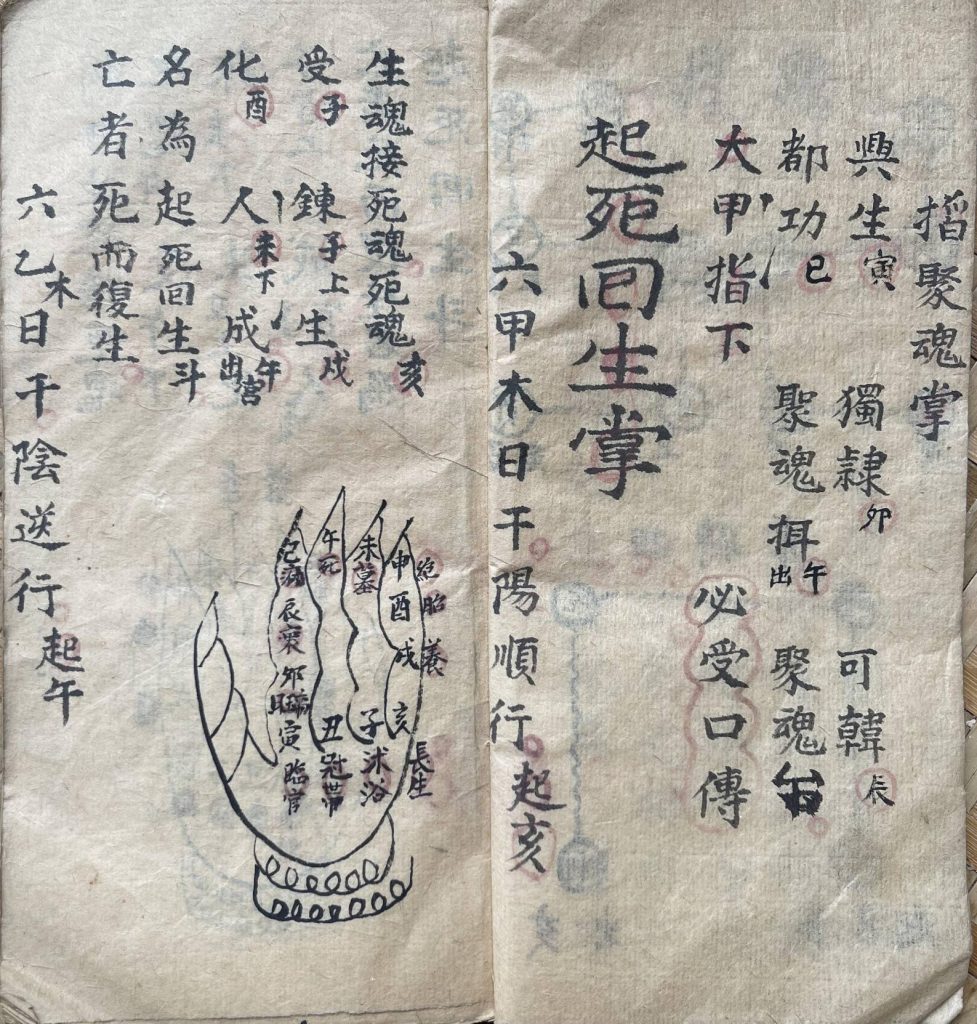 搯聚魂掌
興生寅 獨隷卯 可韓辰
都功巳 聚魂挕午出 聚魂台
大甲指下 必受口傳
起死回生掌
六甲木日干陽順行起亥
生魂接死魂死魂亥
受子 鍊子上 生戍
化酉 人未下 成午宮出
名為起死回生斗
亡者死而復生
六乙木日干陰逆行起午
絶胎養
長生
申酉戍亥
未墓
子沐浴
午死
丑冠帶
巳病
辰衰
卯帝旺
寅臨官